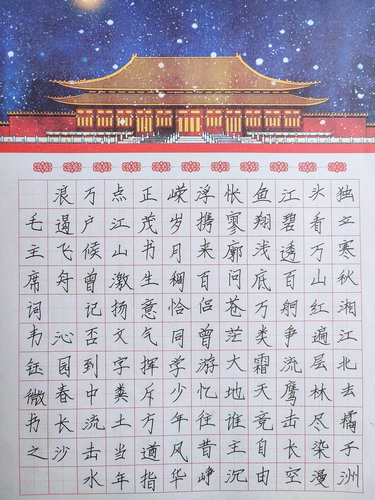 独立寒秋湘江北去橘子洲
头看万山红遍层林尽染漫
江碧透百舸争流鹰击长空
鱼翔浅底万类霜天竞自由
怅寥廓问苍茫大地谁主沉
浮携来百侣曾游忆往昔峥
嵘岁月稠恰同学少年风华
正茂书生意气挥斥方遒指
点江山激扬文字粪土当年
万户候曾记否到中流击水
浪遏飞舟 沁园春长沙
毛主席词韦钰微书之